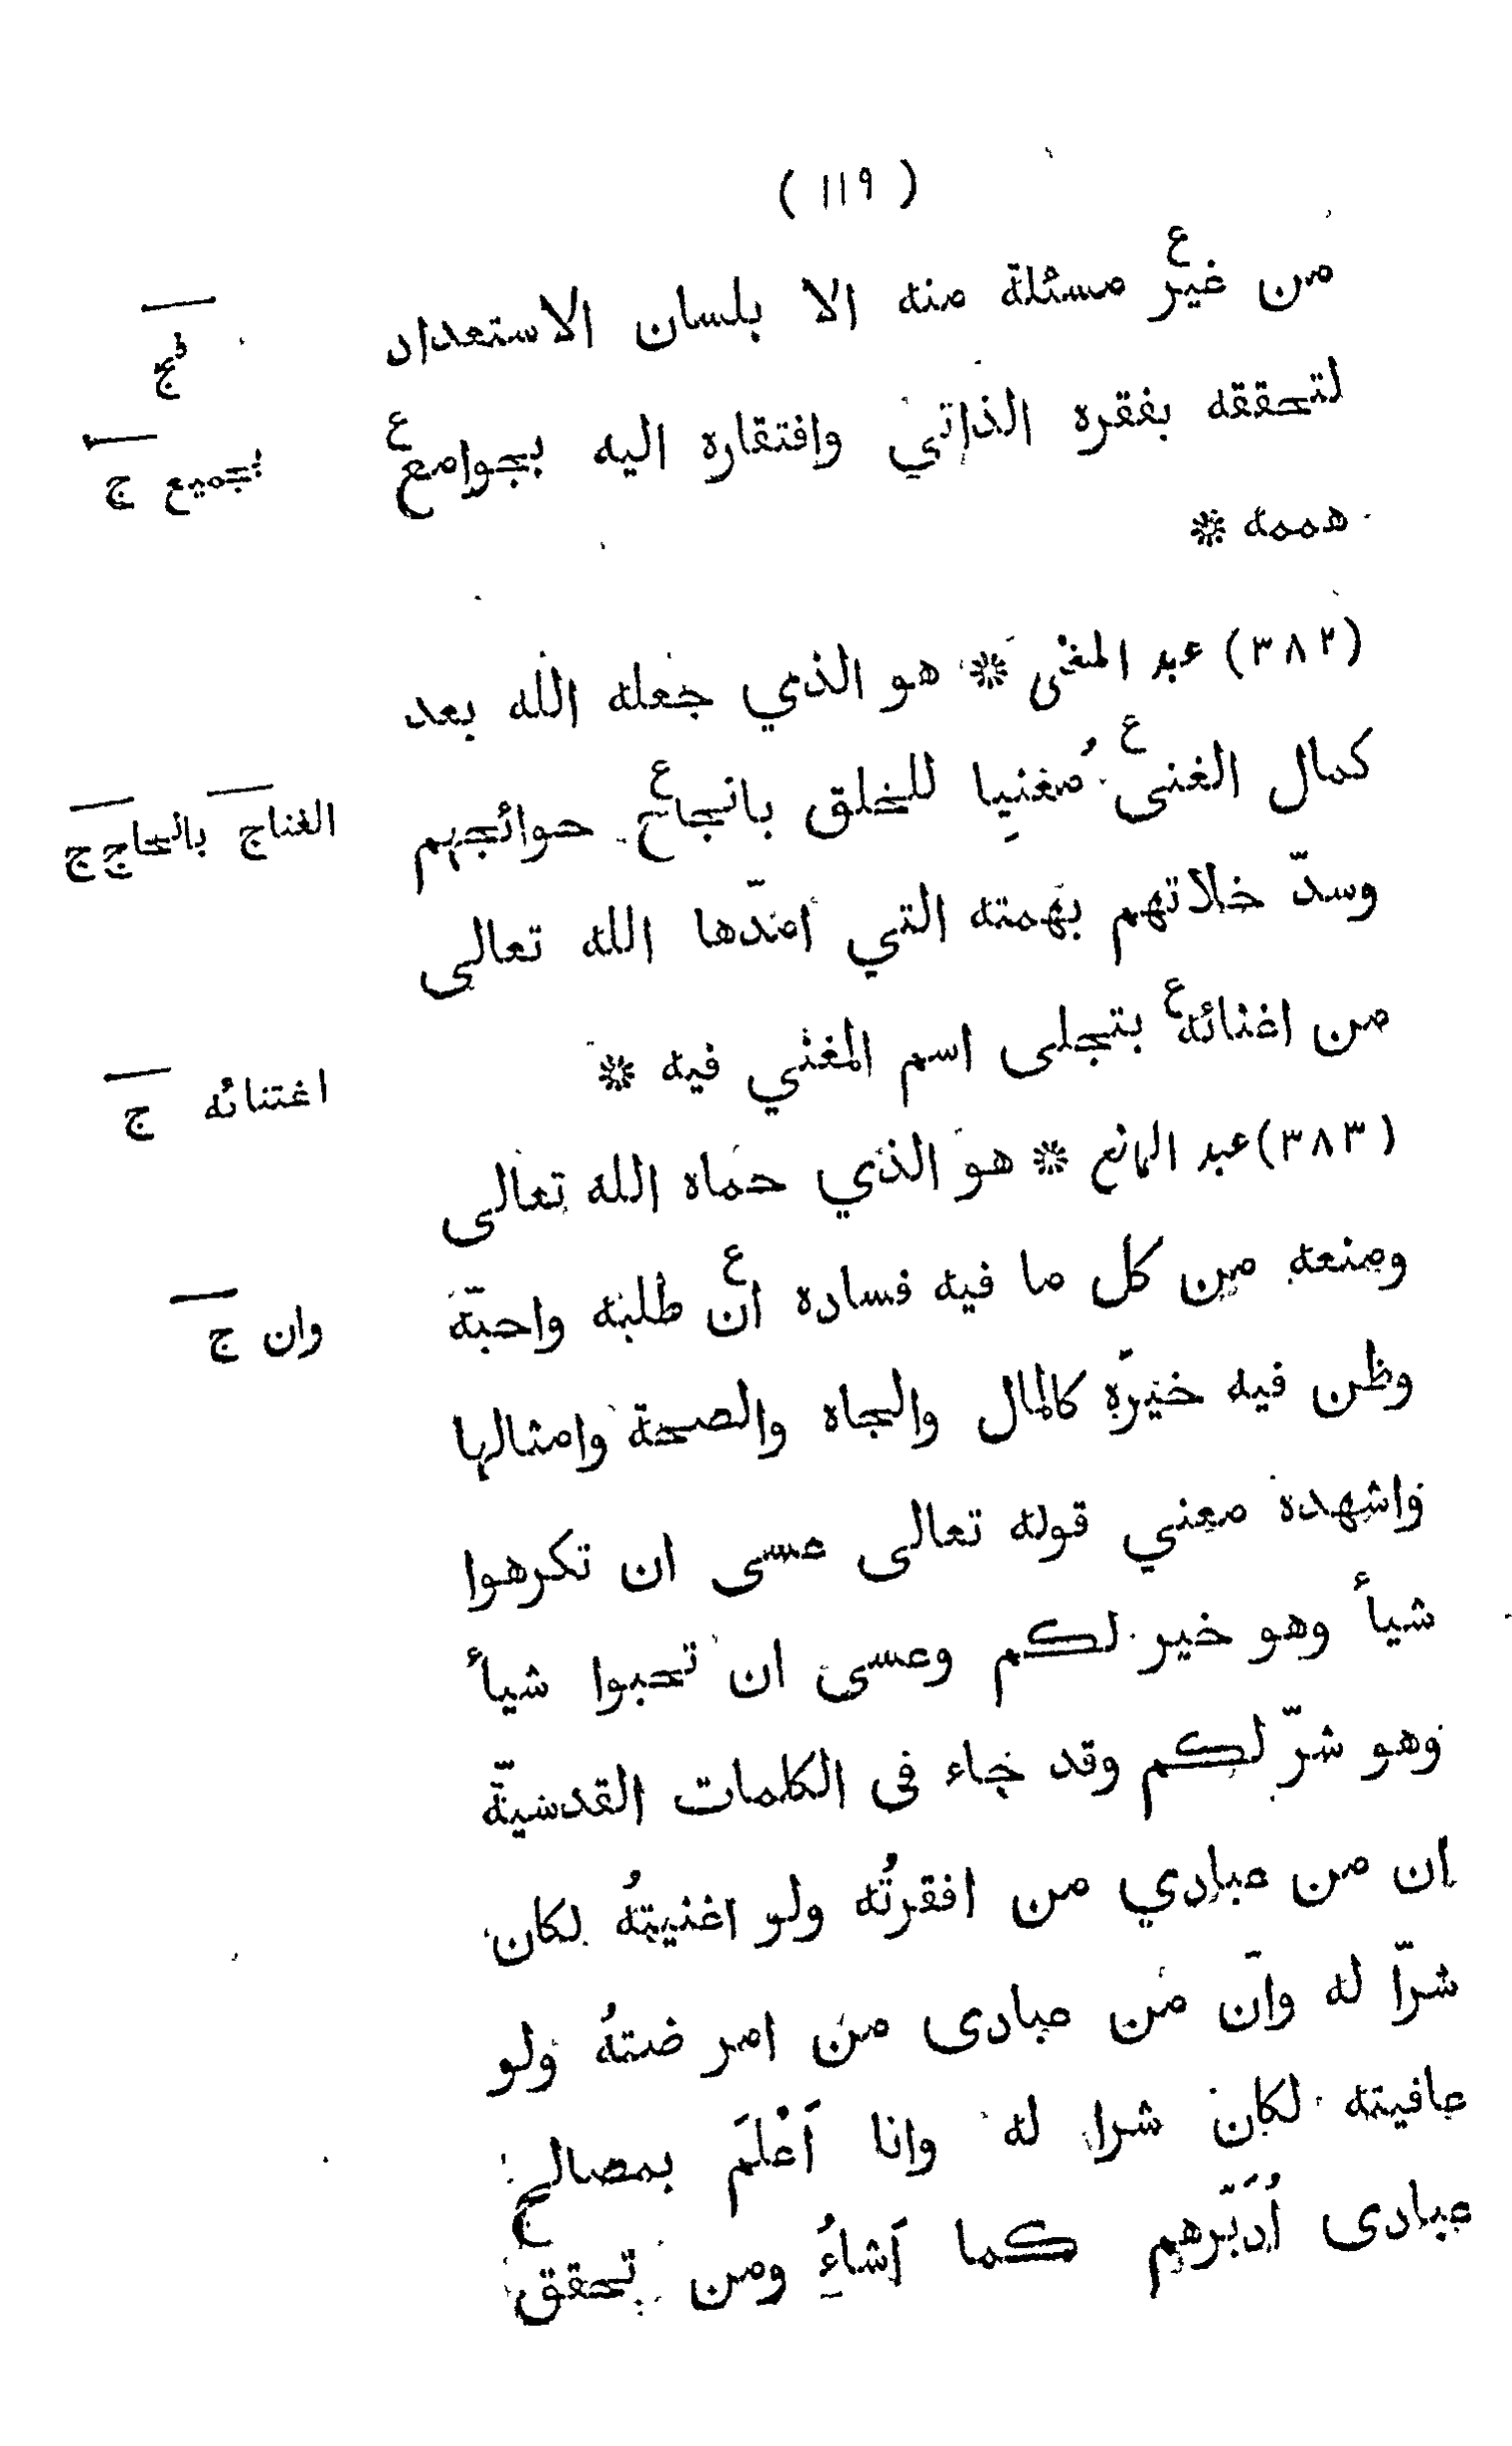 ( ١١٩ )
من غير ع مسئلة منه الا بلسان الاستعداد
لتحققه بفقره الذاتي وافتقاره اليه بجوامع ع
بجميع ج
هممه *
(٣٨٢) عبد المغنى * هو الذي جعله الله بعد
كمال الغنى ع مُغنيِا للخلق بانجاح ع حوائجهم
الغنا ج بالحاج ج
وسدّ خلاتهم بهمته التي امدّها الله تعالى
من اغنائه ع بتجلى اسم المغني فيه *
اغتنائه ج
(٣٨٣) عبد المانع * هو الذي حماه الله تعالى
ومنعه من كل ما فيه فساده ان ع طلبه واحبّه
وان ج
وظن فيه خيرَه كالمال والجاه والصحة وامثالها
واشهده معني قوله تعالى عسى ان تكرهوا
شيأ وهو خير لكم وعسى ان تحبوا شيأ
وهو شرّ لكم وقد جاء فى الكلمات القدسيّة
ان من عبادي من افقرتُه ولو اغنيتهُ لكان
شرّا له وان من عبادى من امر ضتهُ ولو
عافيته لكان شرا له وانا اَعْلَم بمصالح
عبادى اُدَبّرهم كما اَشاءُ ومن تحقق